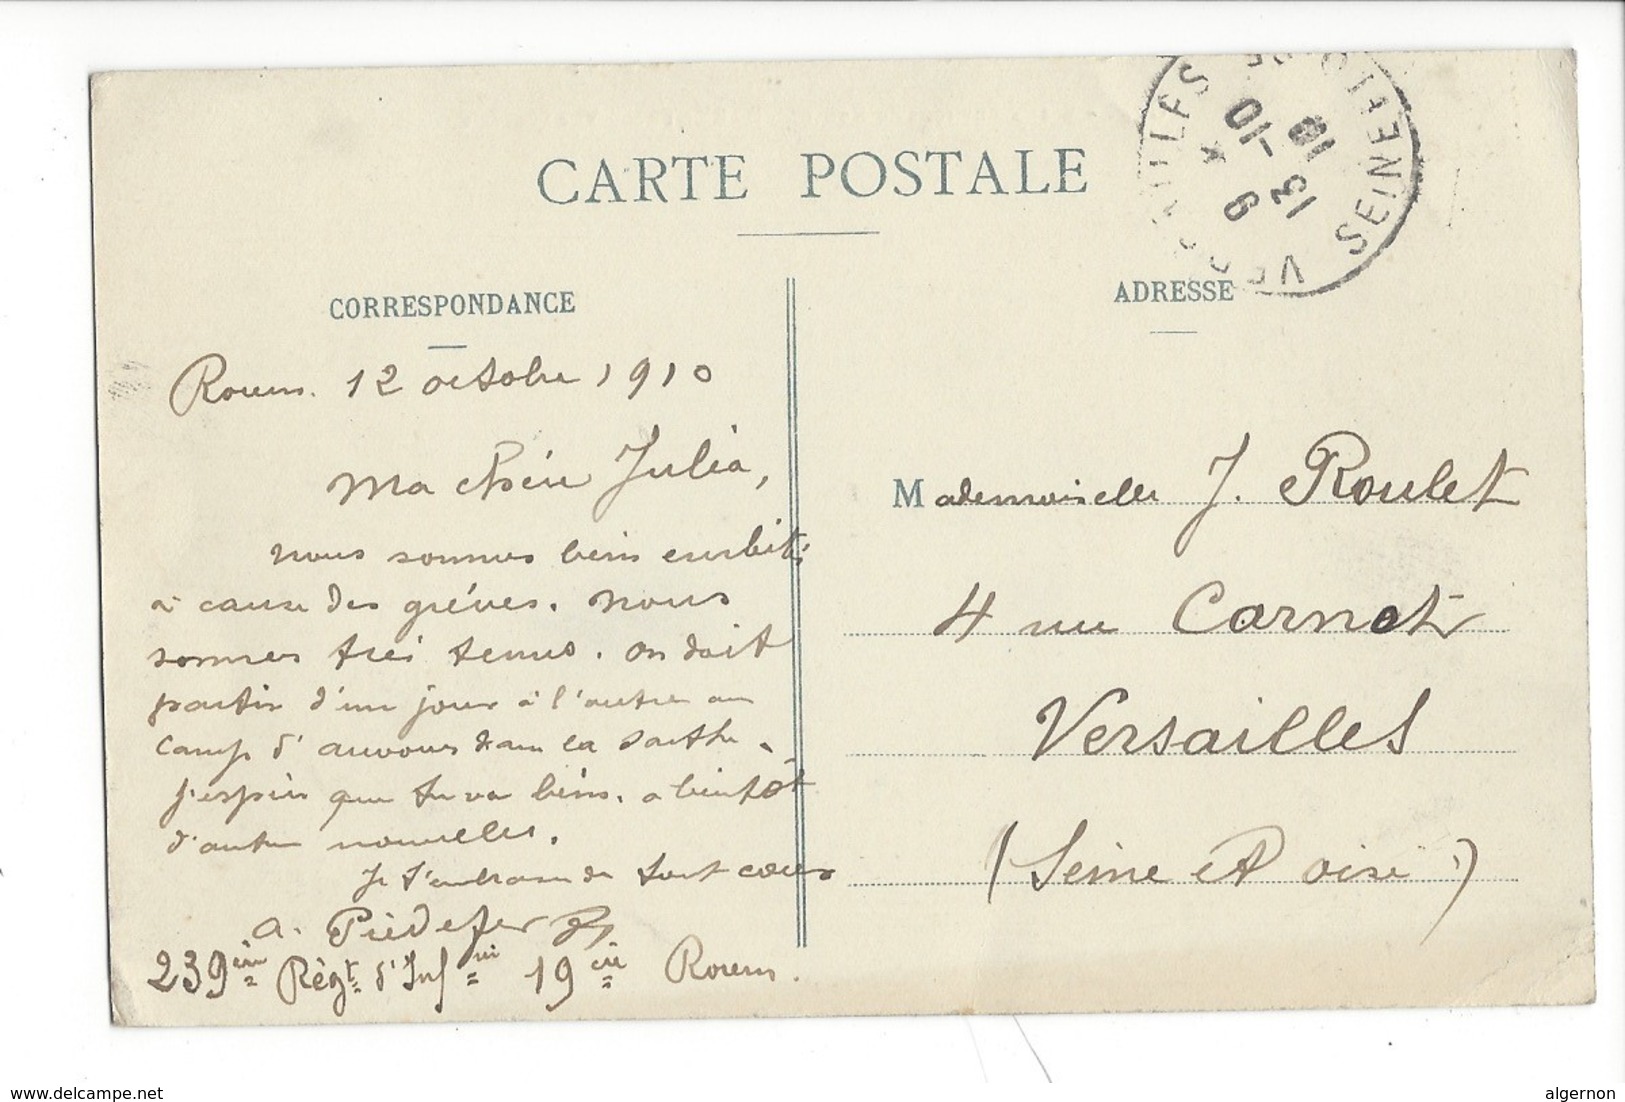 CARTE POSTALE
CORRESPONDANCE
Rouen. 12 octobre 1910
Ma chère Julia,
nous sommes bien embêtés
à cause des grèves. Nous
sommes très tenus. On doit
partir d'un jour à l'autre au
camp d'auvours dans la Sarthe.
j'espère que tu va bien. a bientôt
d'autre nouvelles.
Je t'embrasse de tout cœur
a. Piedefer
239ème Règt d'Infrie 19ème Rouen.
ADRESSE
Mademoiselle J. Roulet
4 rue Carnot
Versailles
(Seine et oise)
VERSAILLES
SEINE-ET-OISE
13 -10
10
delcampe.net
algernon